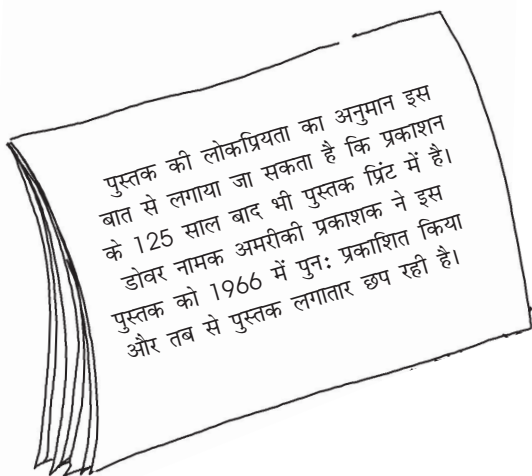 पुस्तक की लोकप्रियता का अनुमान इस
बात से लगाया जा सकता है कि प्रकाशन
के 125 साल बाद भी पुस्तक प्रिंट में है।
डोवर नामक अमरीकी प्रकाशक ने इस
पुस्तक को 1966 में पुन: प्रकाशित किया
और तब से पुस्तक लगातार छप रही है।